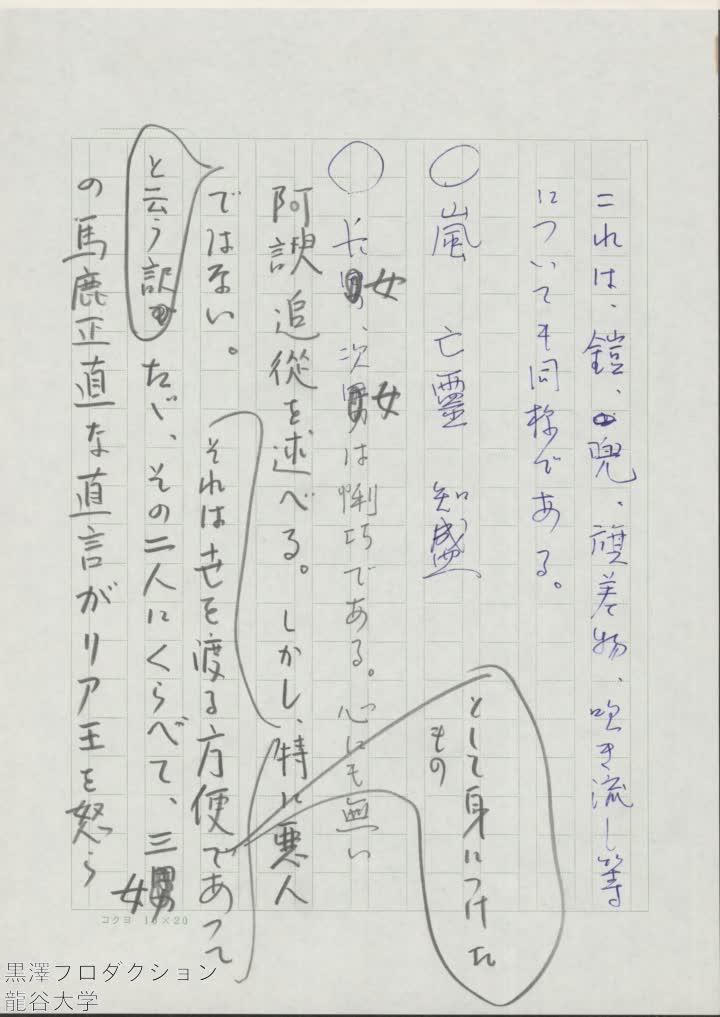 これは、鎧、兜、旗差物、吹き流し等
についても同様である。
○嵐 亡霊 知盛
○長女、次女は悧巧である。心にも無い
阿諛追従を述べる。しかし、特に悪人
ではない。それは世を渡る方便であって
として身につけた
もの
と云う訳
たゞ、その二人にくらべて、三女
の馬鹿正直な直言がリア王を怒ら
コクヨ 10×20
黒澤プロダクション
龍谷大学